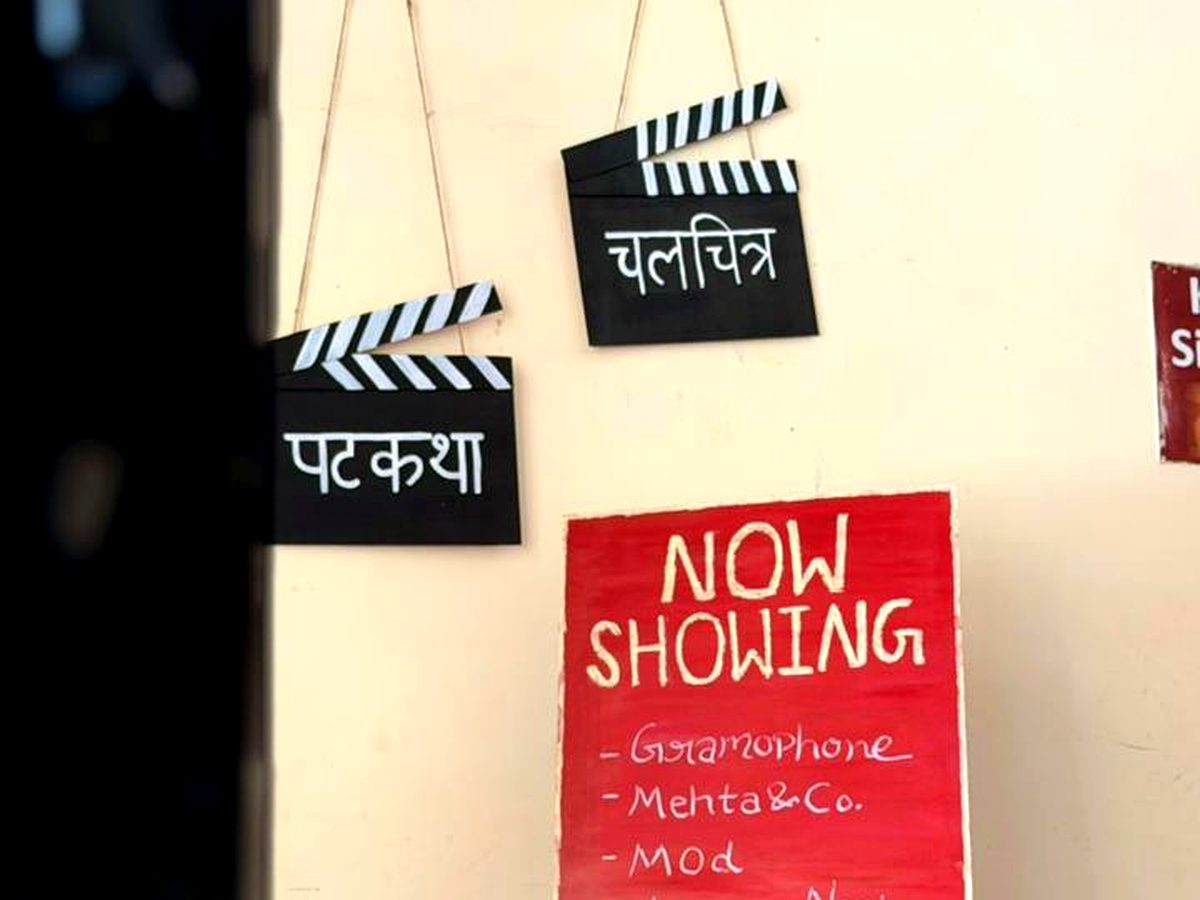 चलचित्र
पटकथा
NOW
SHOWING
- Gramophone
- Mehta & Co.
- Mod